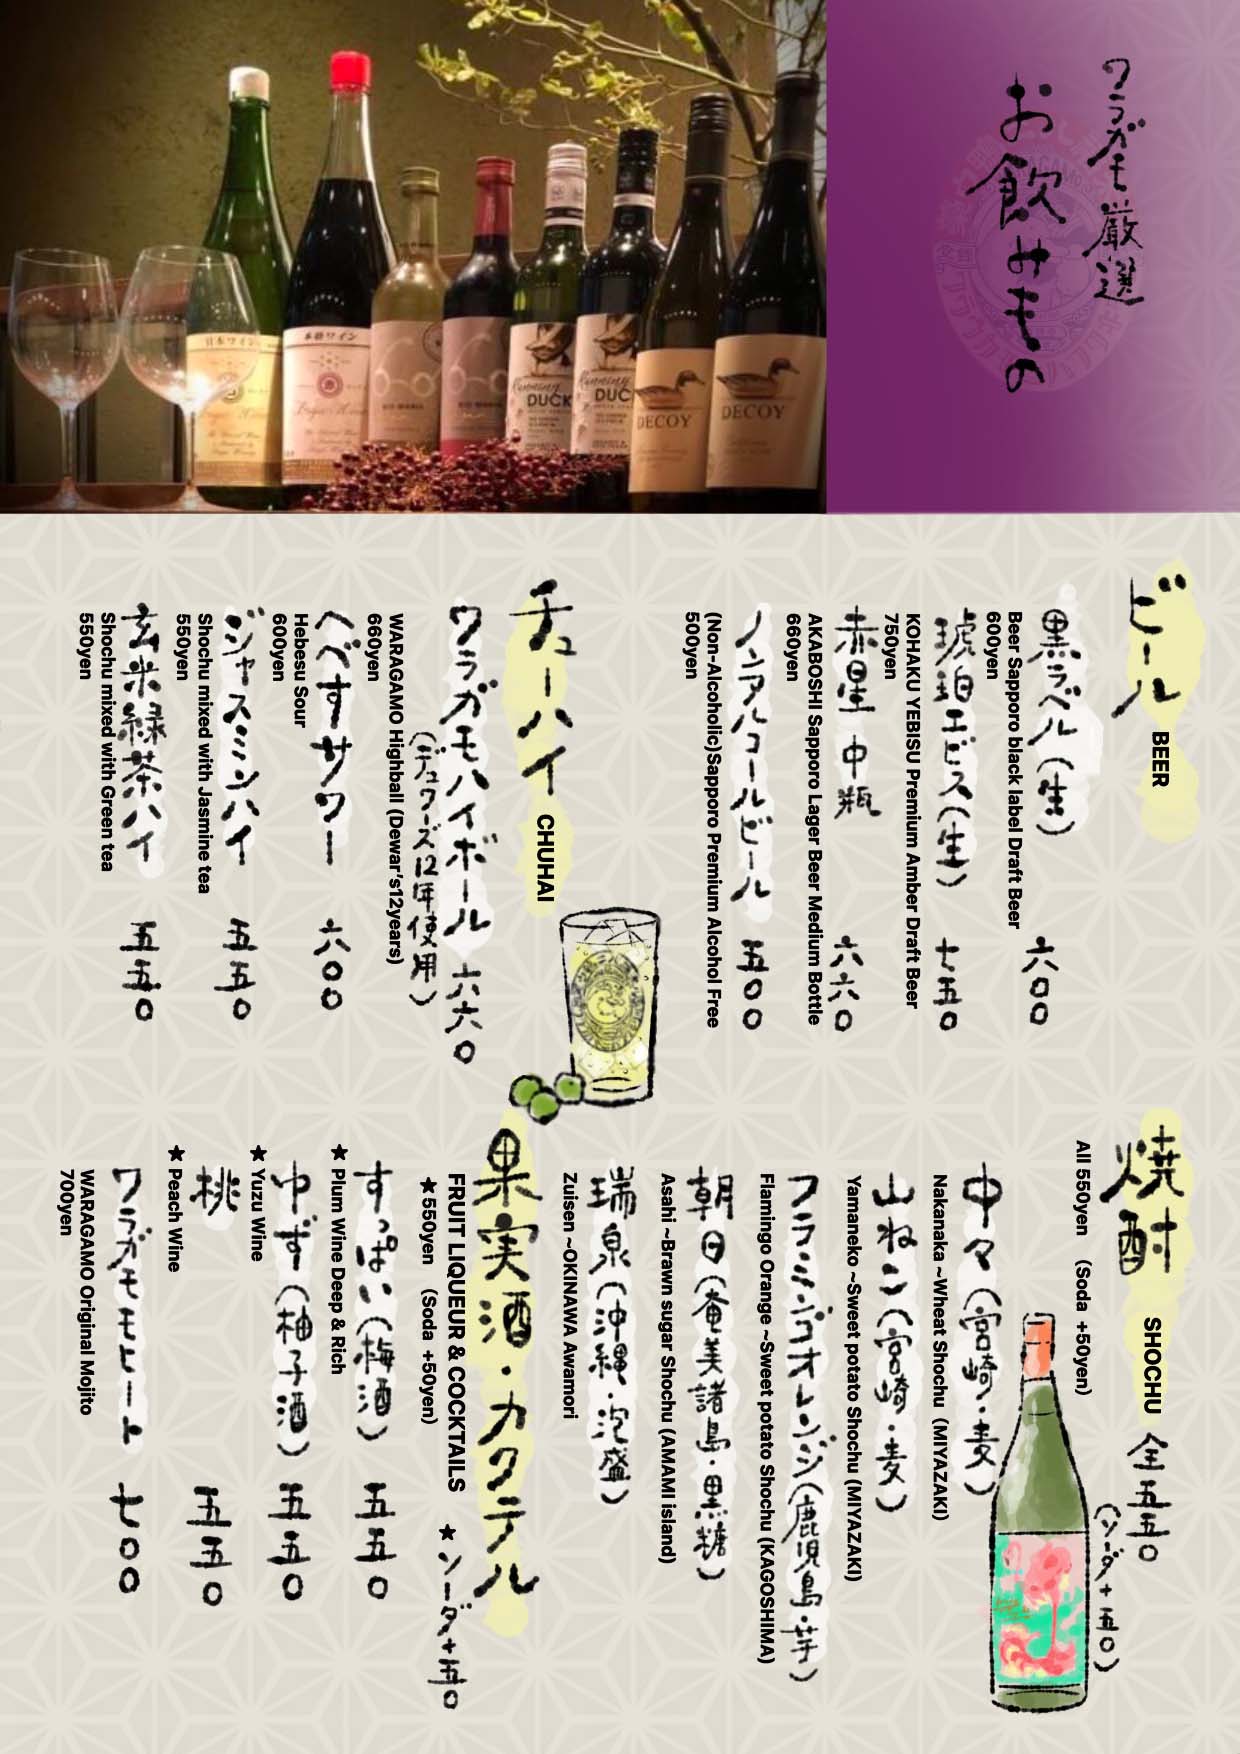 ワラガモ厳選
お飲みもの
日本ワイン
本格ワイン
Running
DUCK
DUCK
DECOY
DECOY
ビール BEER
黒ラベル(生) 六〇〇
Beer Sapporo black label Draft Beer
600yen
琥珀エビス(生) 七五〇
KOHAKU YEBISU Premium Amber Draft Beer
750yen
赤星 中瓶 六六〇
AKABOSHI Sapporo Lager Beer Medium Bottle
660yen
ノンアルコールビール 五〇〇
(Non-Alcoholic)Sapporo Premium Alcohol Free
500yen
チューハイ CHUHAI
ワラガモハイボール 六六〇
(デュワーズ12年使用)
WARAGAMO Highball (Dewar's12years)
660yen
へべすサワー 六〇〇
Hebesu Sour
600yen
ジャスミンハイ 五五〇
Shochu mixed with Jasmine tea
550yen
玄米緑茶ハイ 五五〇
Shochu mixed with Green tea
550yen
焼酎 SHOCHU 全五五〇
(ソーダ+五〇)
All 550yen (Soda +50yen)
中々(宮崎・麦)
Nakanaka ~Wheat Shochu (MIYAZAKI)
山ねこ(宮崎・麦)
Yamaneko ~Sweet potato Shochu (MIYAZAKI)
フラミンゴオレンジ(鹿児島・芋)
Flamingo Orange ~Sweet potato Shochu (KAGOSHIMA)
朝日(奄美諸島・黒糖)
Asahi ~Brawn sugar Shochu (AMAMI island)
瑞泉(沖縄・泡盛)
Zuisen ~OKINAWA Awamori
果実酒・カクテル
FRUIT LIQUEUR & COCKTAILS ★ソーダ+五〇
★550yen (Soda +50yen)
すっぱい(梅酒) 五五〇
★ Plum Wine Deep & Rich
ゆず(柚子酒) 五五〇
★ Yuzu Wine
桃 五五〇
★ Peach Wine
ワラガモモヒート 七〇〇
WARAGAMO Original Mojito
700yen